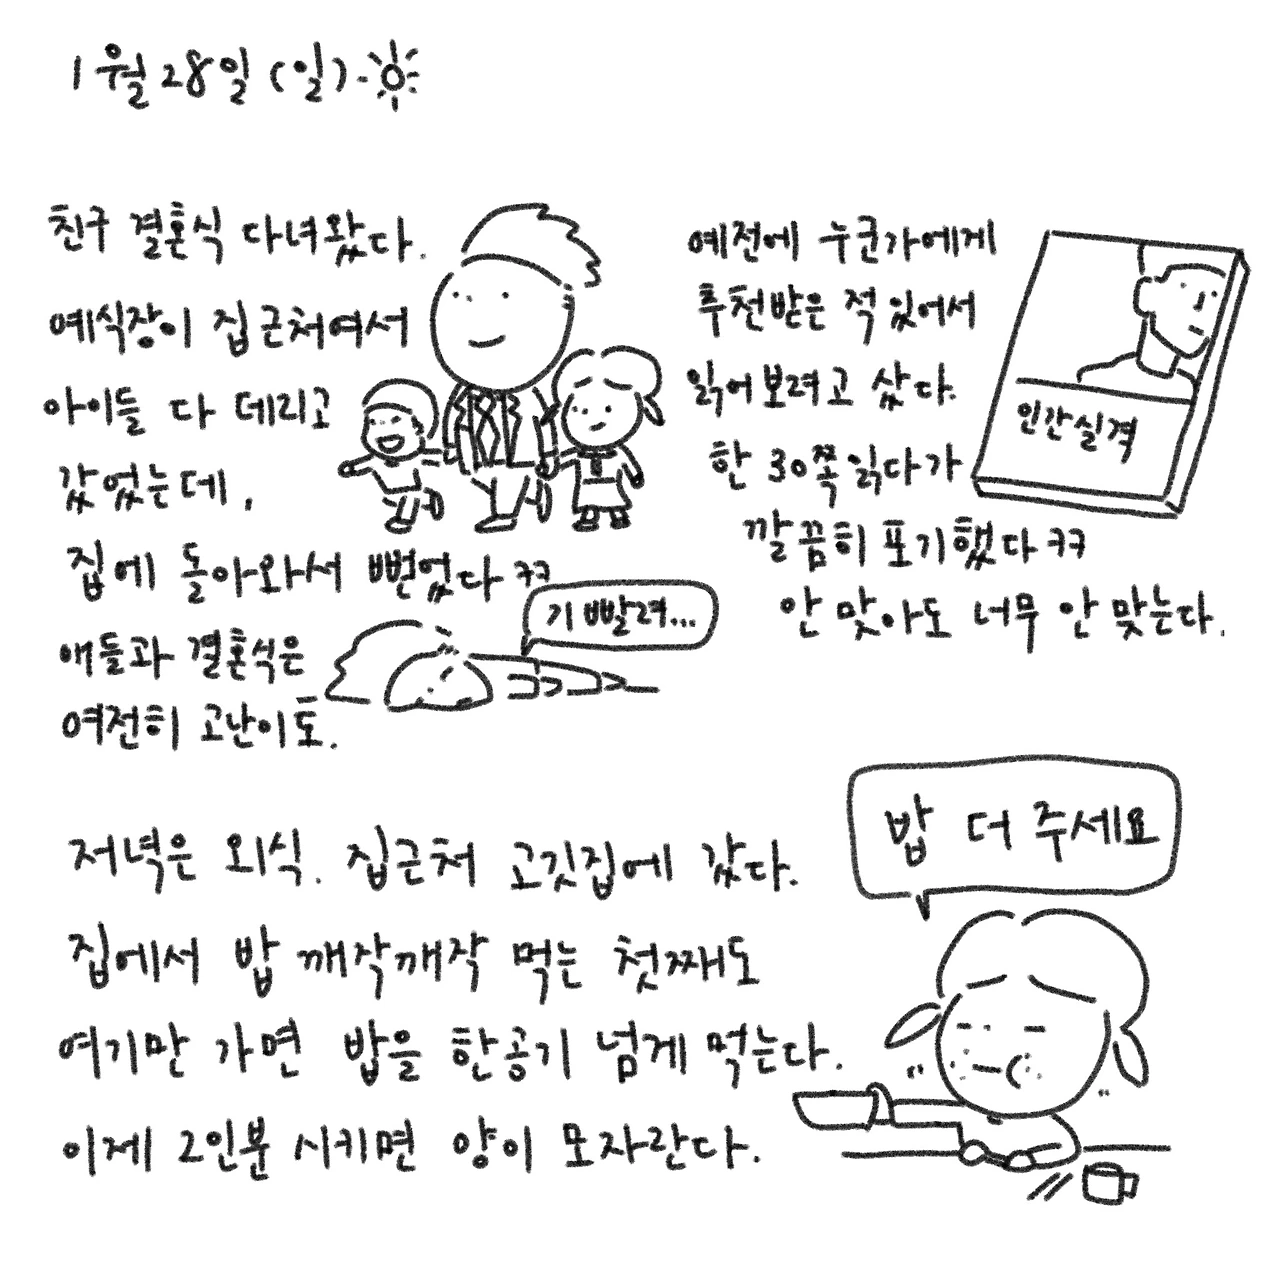 1월 28일 (일)
친구 결혼식 다녀왔다.
예식장이 집 근처여서
아이들 다 데리고
갔었는데,
집에 돌아와서 뻗었다 ㅋㅋ
기 빨려...
애들과 결혼식은
여전히 고난이도.
예전에 누군가에게
추천받은 적 있어서
읽어보려고 샀다.
한 30쪽 읽다가
깔끔히 포기했다 ㅋㅋ
안 맞아도 너무 안 맞는다.
인간실격
저녁은 외식. 집근처 고깃집에 갔다.
집에서 밥 깨작깨작 먹는 첫째도
여기만 가면 밥을 한공기 넘게 먹는다.
이제 2인분 시키면 양이 모자란다.
밥 더 주세요